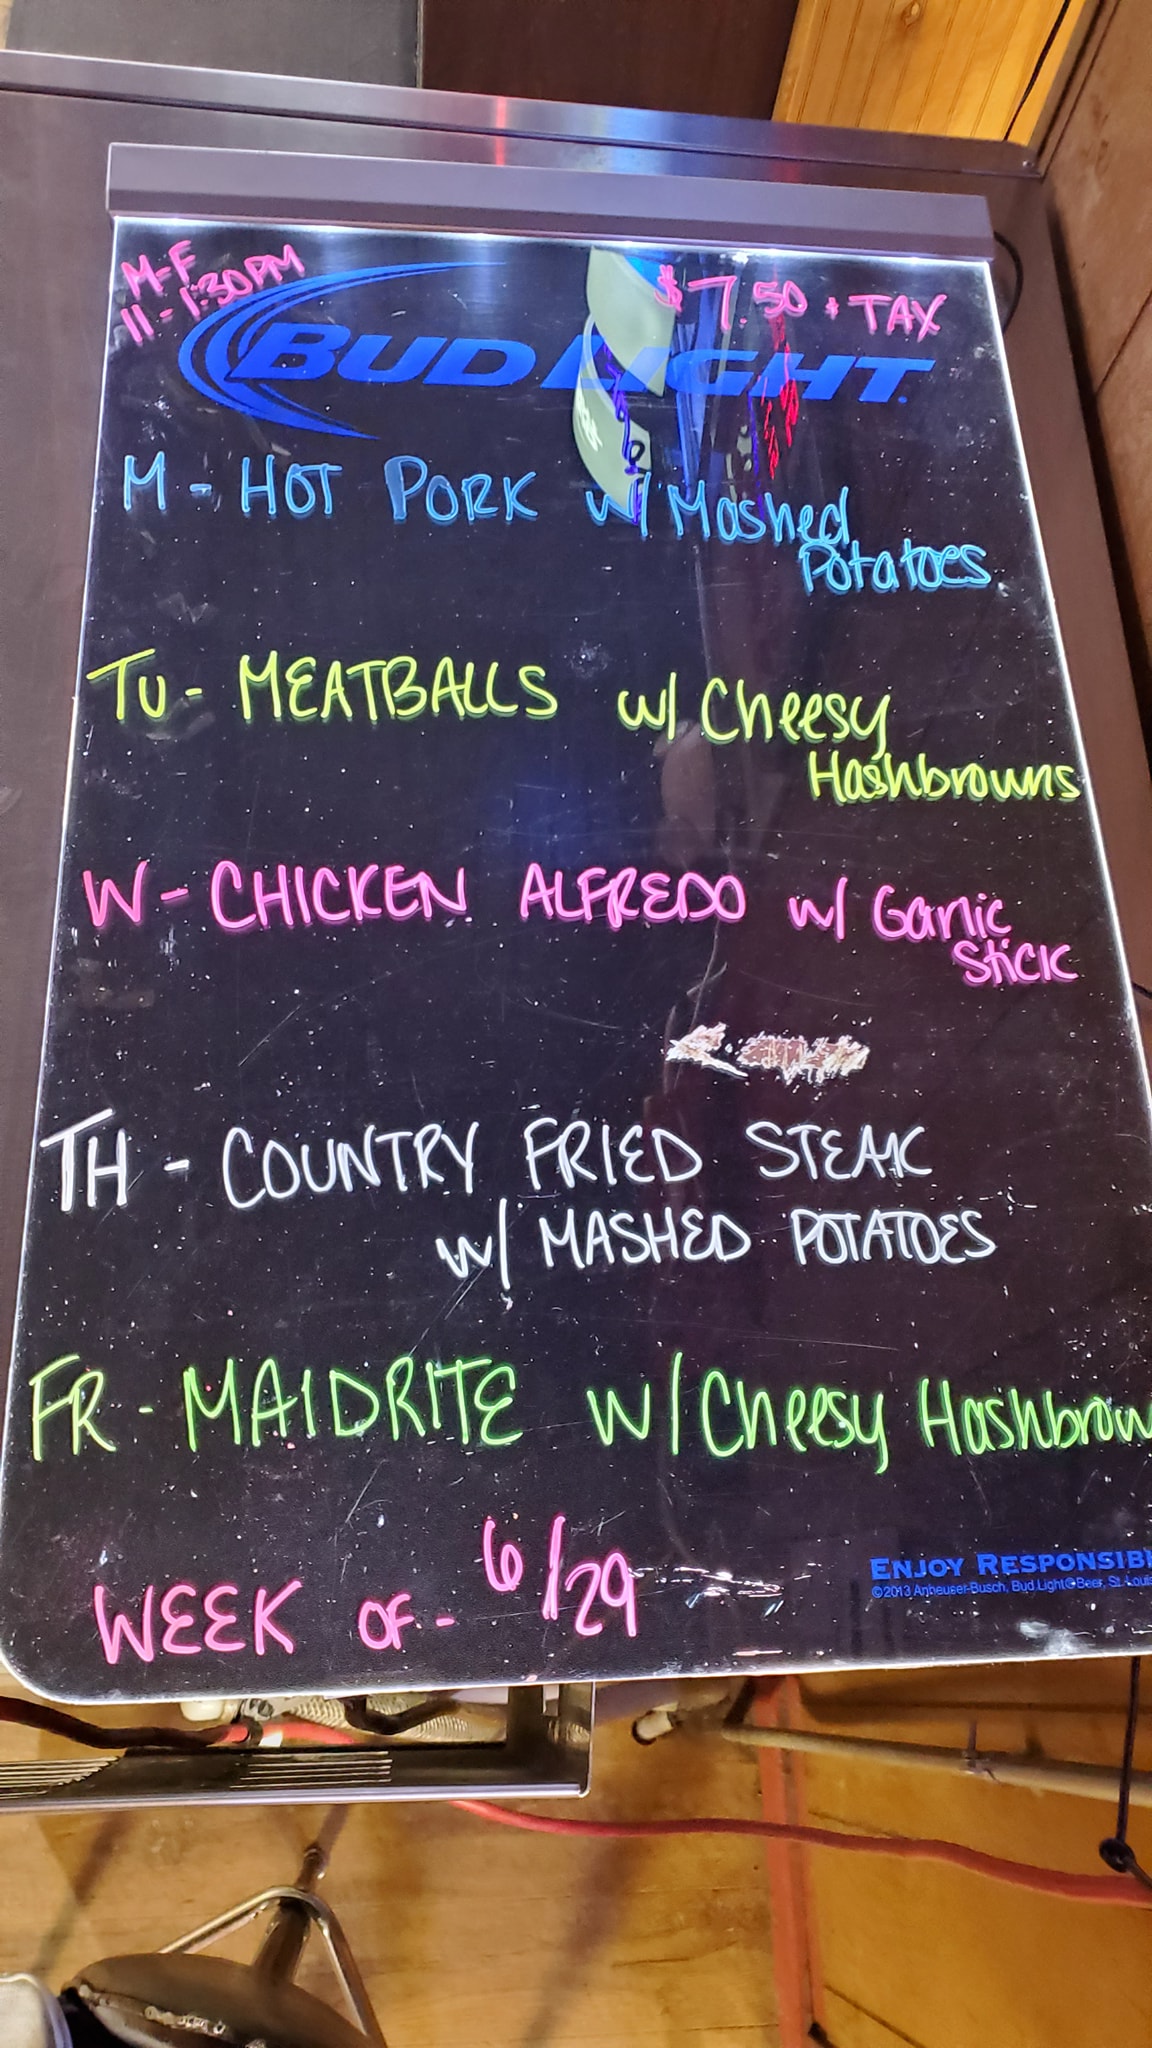 M-F
11-1:30PM
$7.50 + TAX
BUD LIGHT.
M - HOT PORK w/ Mashed
Potatoes
TU - MEATBALLS w/ Cheesy
Hashbrowns
W - CHICKEN ALFREDO w/ Garlic
Stick
TH - COUNTRY FRIED STEAK
w/ MASHED POTATOES
FR - MAIDRITE w/ Cheesy Hashbrow
WEEK OF - 6/29
ENJOY RESPONSIB
©2013 Anheuser-Busch, Bud Light® Beer, St. Louis